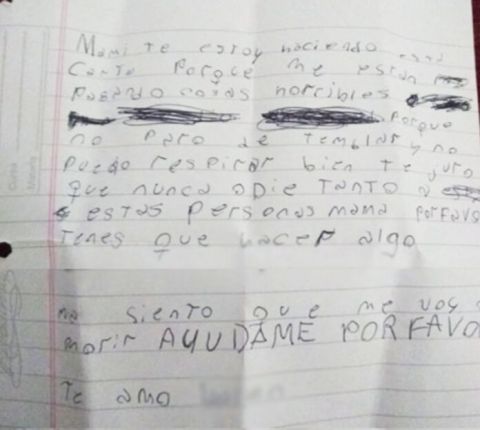 Mami te estoy haciendo esta
carta porque me están
pasando cosas horribles
porque
no paro de temblar y no
puedo respirar bien te juro
que nunca odie TANTO a
estas personas mama porfavo
Tenes que hacer algo
siento que me voy a
morir AYUDAME PORFAVO
Te amo